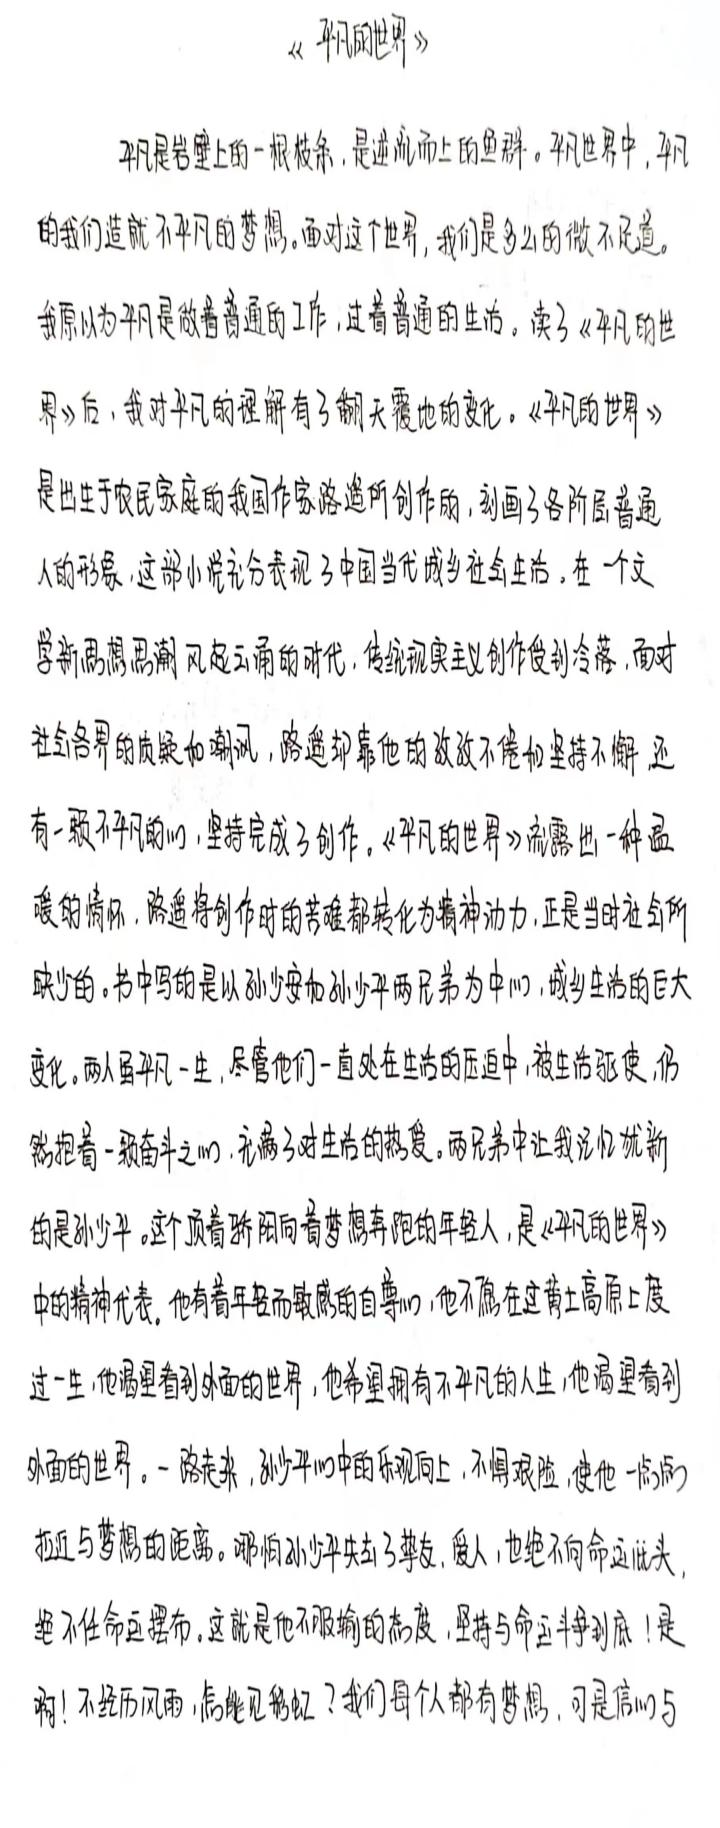 《平凡的世界》
平凡是岩壁上的一根枝条，是逆流而上的鱼群。平凡世界中，平凡
的我们造就不平凡的梦想。面对这个世界，我们是多么的微不足道。
我原以为平凡是做着普通的工作，过着普通的生活。读了《平凡的世
界》后，我对平凡的理解有了翻天覆地的变化。《平凡的世界》
是出生于农民家庭的我国作家路遥所创作的，刻画了各阶层普通
人的形象，这部小说充分表现了中国当代城乡社会生活。在一个文
学新思想思潮风起云涌的时代，传统现实主义创作受到冷落，面对
社会各界的质疑和嘲讽，路遥却靠他的孜孜不倦和坚持不懈，还
有一颗不平凡的心，坚持完成了创作。《平凡的世界》流露出一种温
暖的情怀，路遥将创作时的苦难都转化为精神动力，正是当时社会所
缺少的。书中写的是以孙少安和孙少平两兄弟为中心，城乡生活的巨大
变化。两人虽平凡一生，尽管他们一直处在生活的压迫中，被生活驱使，仍
然抱着一颗奋斗之心，充满了对生活的热爱。两兄弟中让我记忆犹新
的是孙少平。这个顶着骄阳向着梦想奔跑的年轻人，是《平凡的世界》
中的精神代表。他有着年轻而敏感的自尊心，他不愿在这黄土高原上度
过一生，他渴望看到外面的世界，他希望拥有不平凡的人生，他渴望看到
外面的世界。一路走来，孙少平心中的乐观向上，不惧艰险，使他一点点
拉近与梦想的距离。哪怕孙少平失去了挚友，爱人，也绝不向命运低头，
绝不任命运摆布。这就是他不服输的态度，坚持与命运斗争到底！是
啊！不经历风雨，怎能见彩虹？我们每个人都有梦想，可是信心与